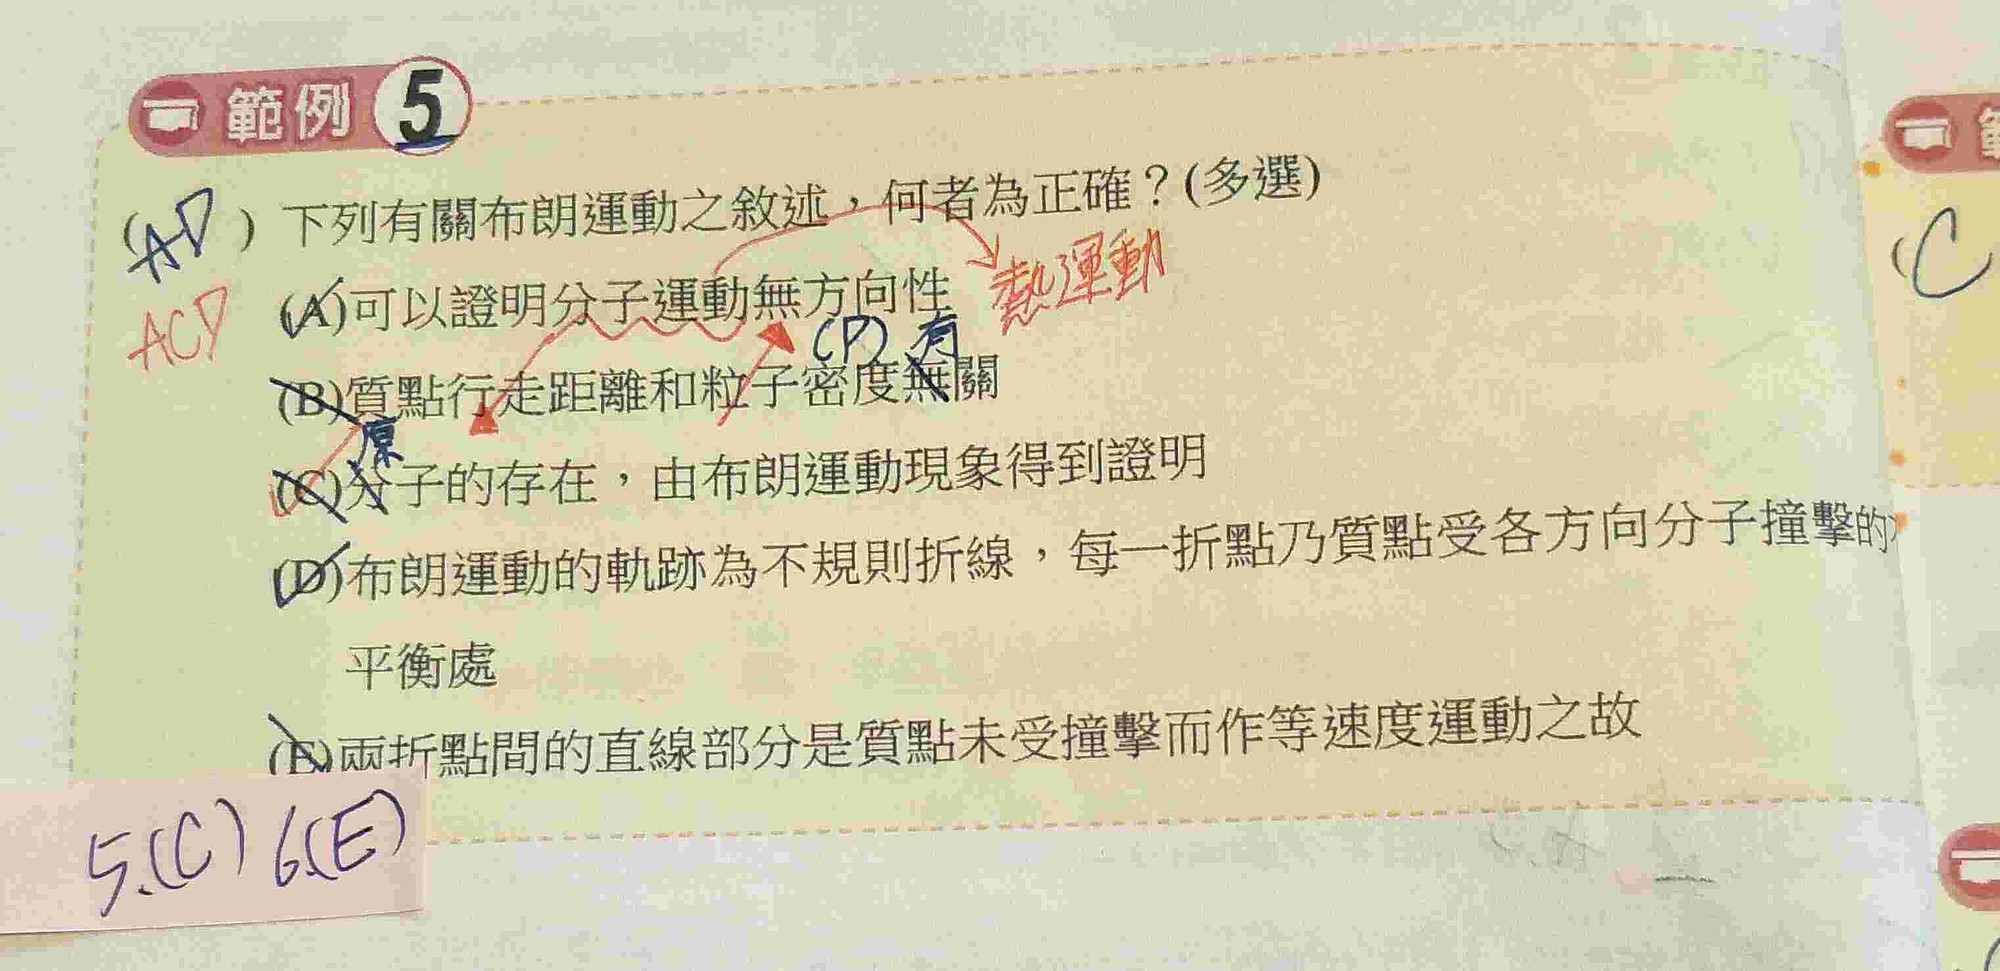 範例 5
(AD) 下列有關布朗運動之敘述，何者為正確？(多選)
ACD
(A)可以證明分子運動無方向性
熱運動
(P) 有
(B)質點行走距離和粒子密度無關
原
(C)分子的存在，由布朗運動現象得到證明
(D)布朗運動的軌跡為不規則折線，每一折點乃質點受各方向分子撞擊的
平衡處
(E)兩折點間的直線部分是質點未受撞擊而作等速度運動之故
5.(C) 6.(E)
(C